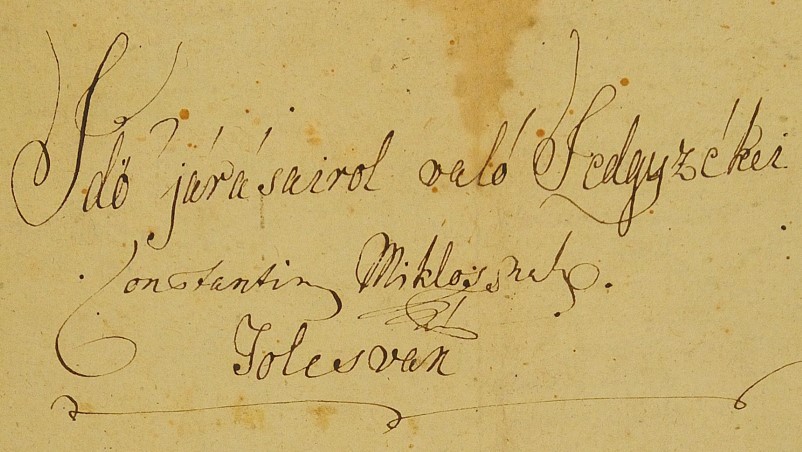 Idö járásairol való Jedgyzékei
Constantin Miklósnak.
Jolesván